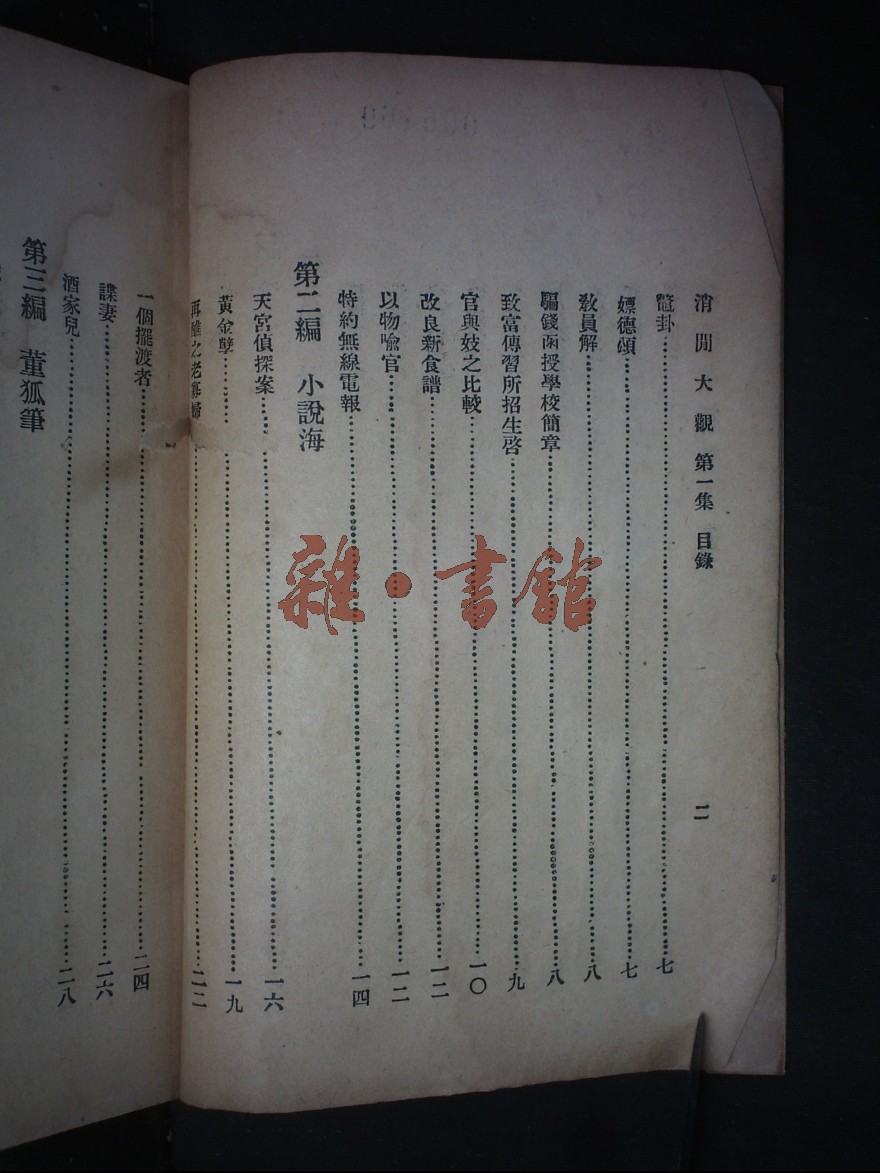 消閒大觀 第一集 目錄 二
鼈卦 七
嫖德頌 七
教員解 八
騙錢函授學校簡章 八
致富傳習所招生啓 九
官與妓之比較 一〇
改良新食譜 一二
以物喩官 一二
特約無線電報 一四
第二編 小說海
天宮偵探案 一六
黃金孽 一九
再醮之老寡婦 二二
一個擺渡者 二四
諜妻 二六
酒家兒 二八
第三編 董狐筆
雜·書館